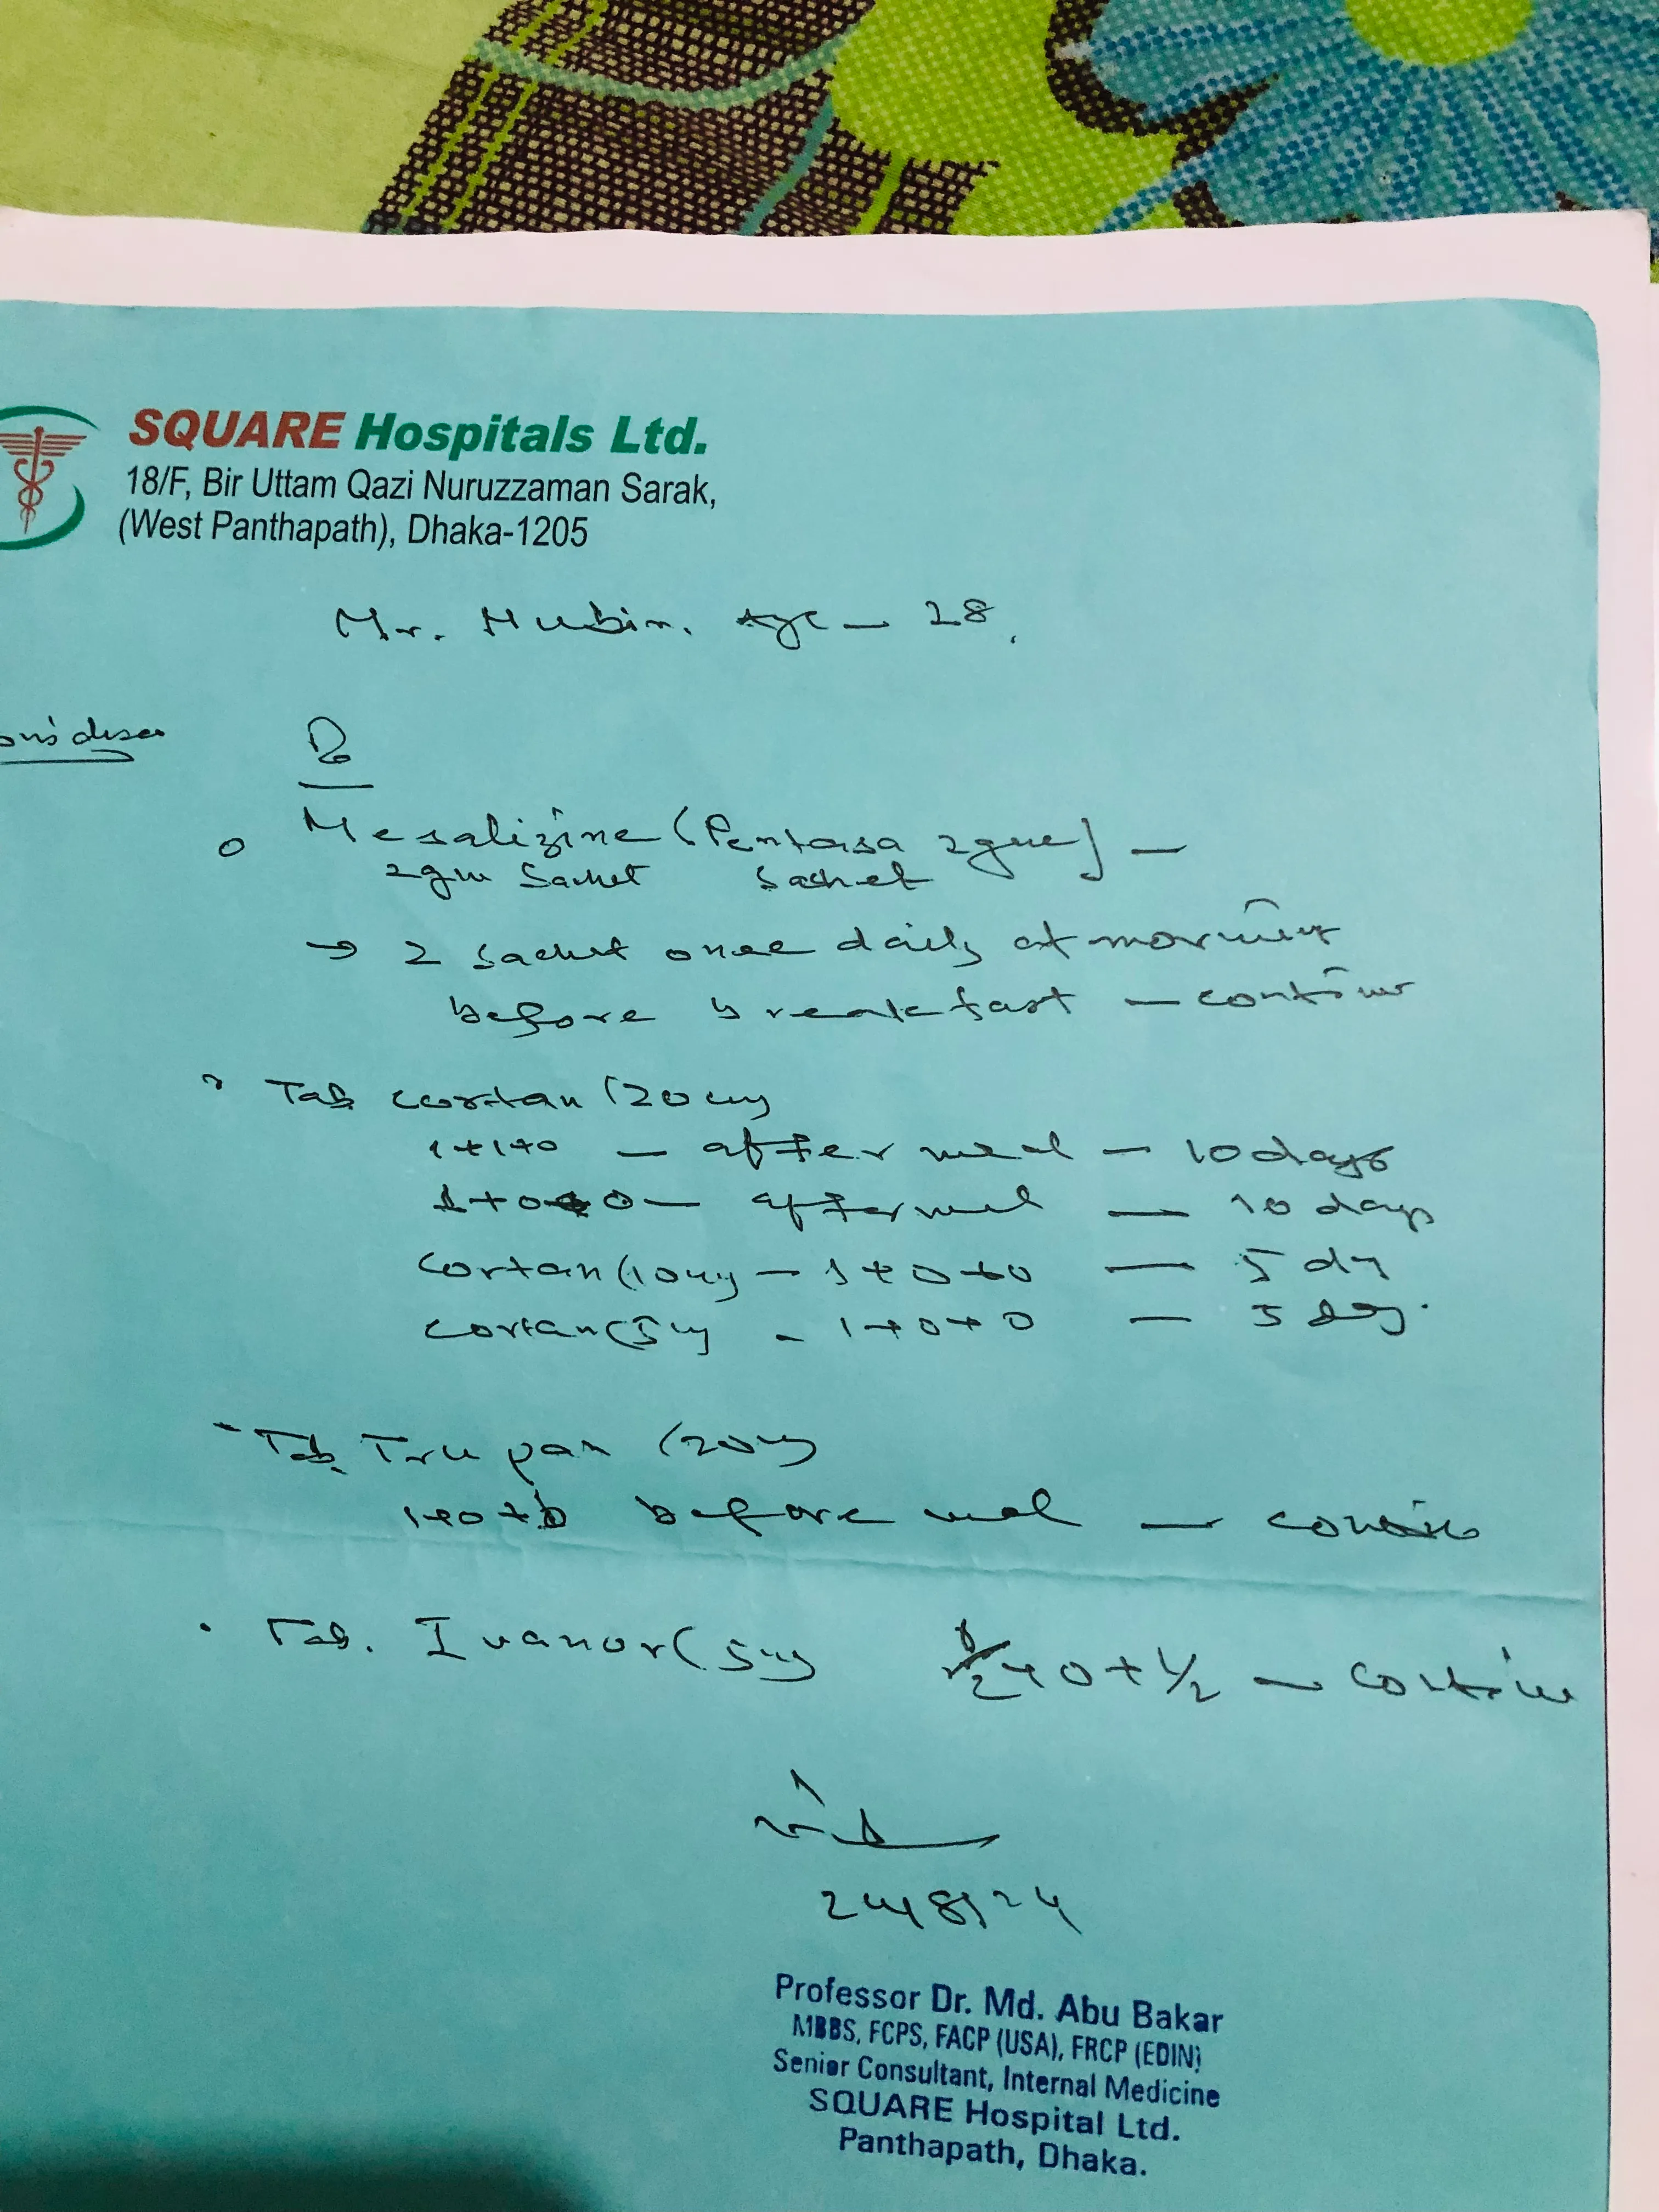 SQUARE Hospitals Ltd.
18/F, Bir Uttam Qazi Nuruzzaman Sarak,
(West Panthapath), Dhaka-1205
Mr. Hubin. Age - 28.
Rx
Mesalizine (Pentasa 2gm) -
2gm Sachet Sachet
→ 2 sachet once daily at morning
before breakfast - continue
Tab cortan (20mg
1+1+0 - after meal - 10 days
1+0+0 - after meal - 10 days
Cortan (10mg - 1+0+0 - 5 dy
Cortan (5mg - 1+0+0 - 5 day.
Tab. Trupan (20mg
1+0+ before meal - continue
Tab. Ivanor (5mg +0+1/2 - continue
24/8/24
Professor Dr. Md. Abu Bakar
MBBS, FCPS, FACP (USA), FRCP (EDIN)
Senior Consultant, Internal Medicine
SQUARE Hospital Ltd.
Panthapath, Dhaka.